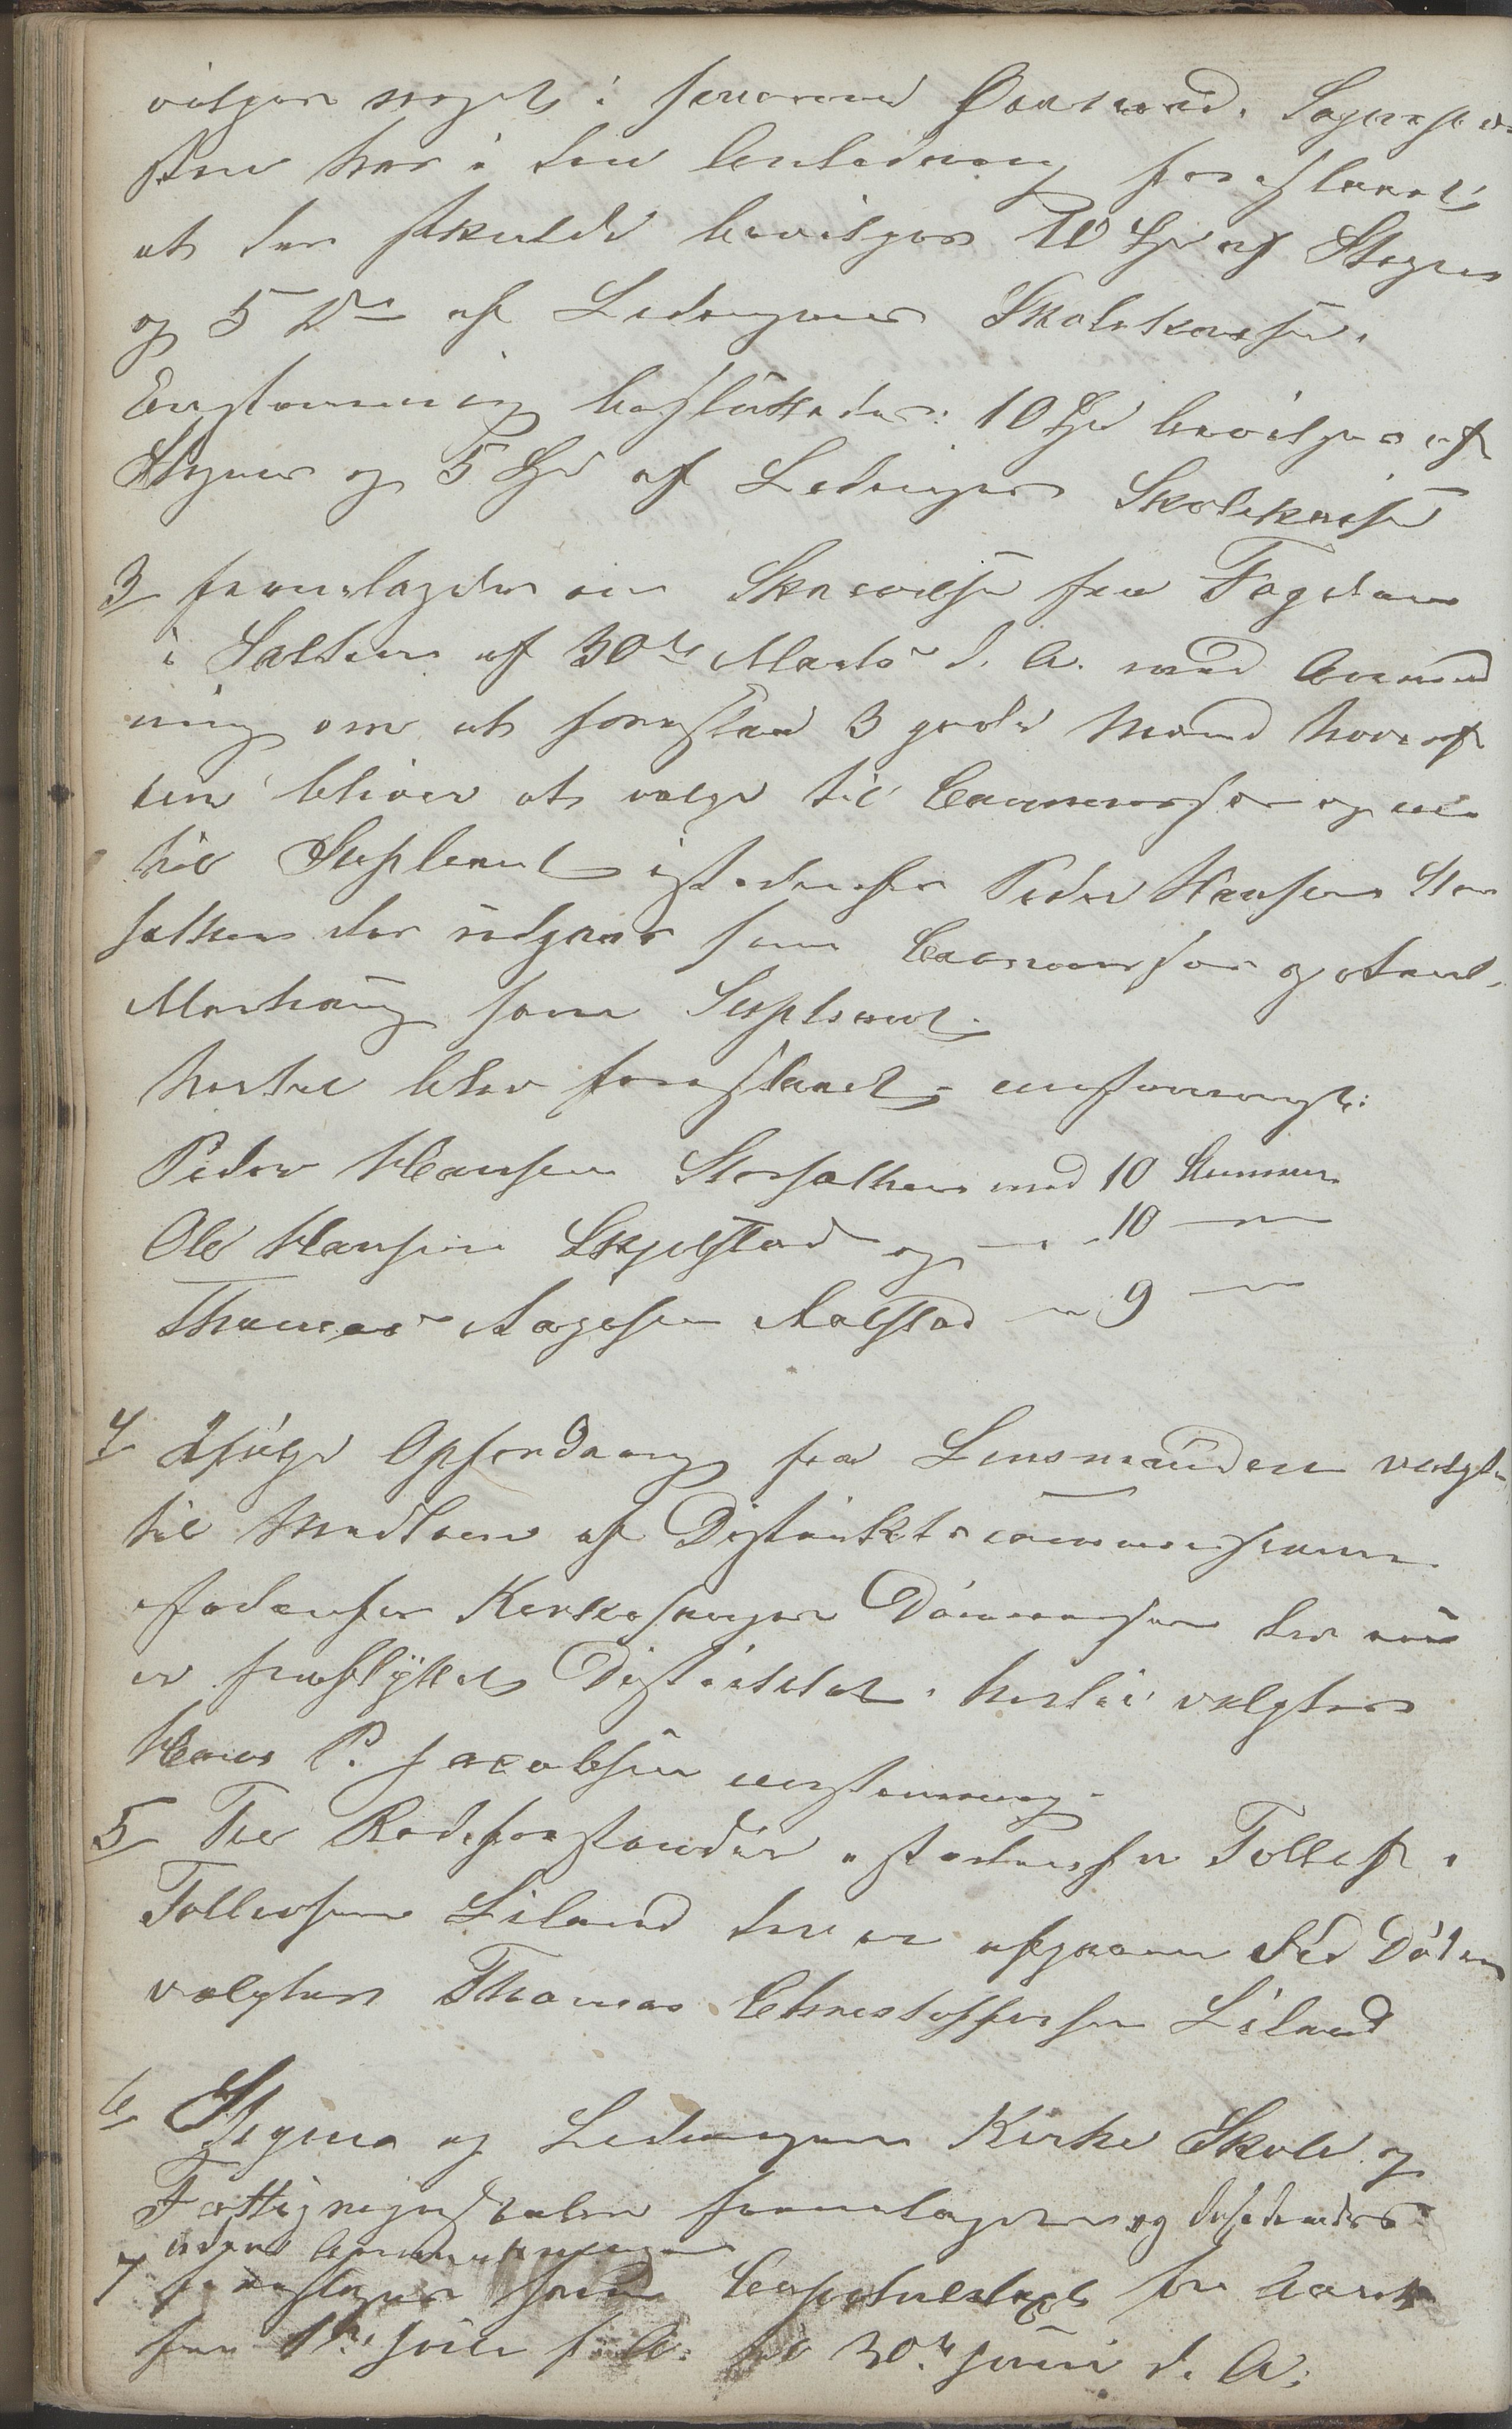 vilgen noget i saamaade. Sognepræ
sten har i den Anledning foreslaaet,
at der skulde bevilges 10 Spd af Stegens
og 5 Do af Lødingens Skolekasse.
Enstemmig besluttedes: 10 Spd bevilges af
Stegens og 5 Spd af Lødingens Skolekasse
3 fremlagdes en Skrivelse fra Fogden
i Salten af 30te Marts d. A. med Anmod
ning om at foreslaae 3 gode Mænd hvoraf
een bliver at vælge til Commissær og een
til Suppleant istedenfor Peder Hansen Stor
fætten der udgaar som Commissær og
som Supleant.
hertil blev foreslaaet enstemmigt:
Peder Hansen Storfætten med 10 Stemmer
Ole Hansen Skjelstad og — 10 —
Thomas Aagesen Aalstad — 9 —
4 Ifølge Opfordring fra Lensmanden valgtes
til Medlem af Distriktscommissionen
istedenfor Kirkesanger Danielsen der nu
er fraflyttet Distriktet. hertil valgtes
Hans P. Jacobsen enstemmig.
5 Til Rodeforstander istedenfor Tollef
Tollevsen Liland der er afgaaen ved Døden
valgtes Thomas Christoffersen Liland
6 Stegens og Lødingens Kirke Skole og
Fattigregnskaber fremlagdes og desiderdes
uden Anmærkninger
7 foreslages som Capitelstaxt for Aaret
fra 1te Juli f. A. til 30te Juni d. A: